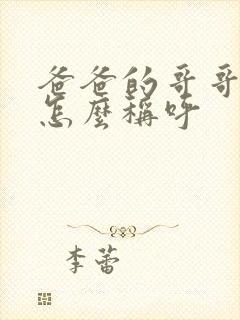 爸爸的哥哥
怎麼稱呼
李蕾